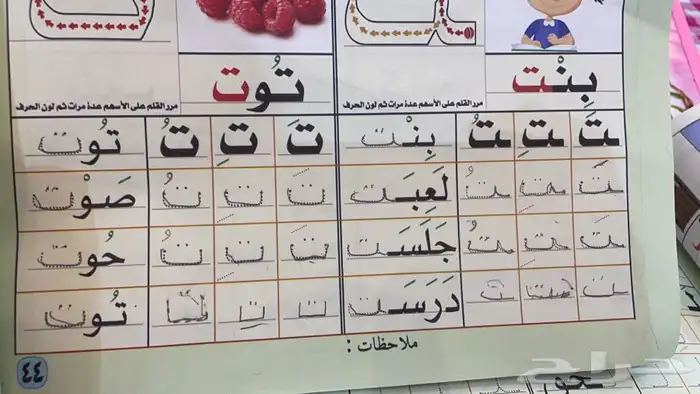 بِنْت
تُوت
مرر القلم على الأسهم عدة مرات ثم لون الحرف
مرر القلم على الأسهم عدة مرات ثم لون الحرف
تَ تِ تُ بِنْت تَ تِ تُ تُوت
تَ تِ تُ لَعِبَت تَ تِ تُ صَوْت
تَ تِ تُ جَلَسَت تَ تِ تُ حُوت
دَرَسَت تُوت
ملاحظات :
٤٤
حراج